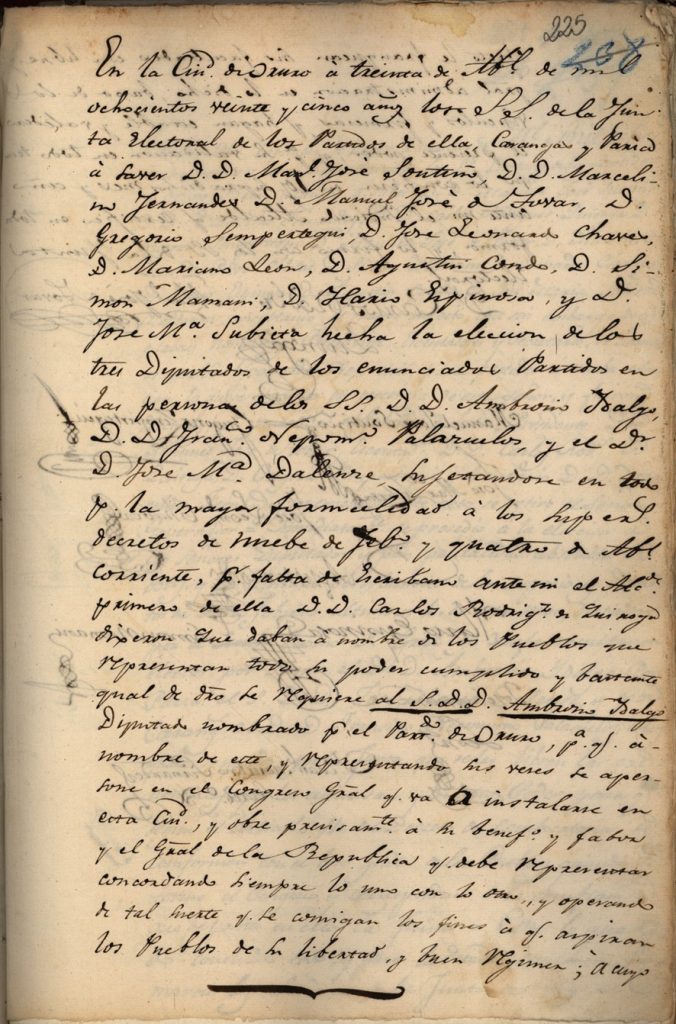 225
En la Ciu.d de Oruro a treinta de Ab.l de mil
ochocientos veinte y cinco años los S.S. de la Jun
ta Electoral de los Partidos de ella, Carangas y Paria
à saver D. D. Man.l José Sontin, D. D. Marceli-
no Fernandez D. Manuel José de Tovar, D.
Gregorio Sempertegui, D. José Leonardo Chaves,
D. Mariano Leon, D. Agustin Condo, D. Si-
mon Mamani, D. Ilario Espinosa, y D.
Jose M.a Subieta hecha la eleccion de los
tres Diputados de los enunciados Partidos en
las personas de los SS. D. D. Ambrosio Idalgo,
D. D. Fran.co Nepom.o Palazuelos, y el D.r
D. Jose M.a Dalenze sugetandose en todo
p. la mayor formalidad à los sup.s
decretos de nuebe de Feb.o y quatro de Ab.l
corriente, p.r falta de Escribano ante mi el Alc.de
primero de ella D. D. Carlos Rodrig.z de Quiroga
dixeron que daban à nombre de los Pueblos que
representan todo su poder cumplido y bastante
qual de dro se requiere al S. D. D. Ambrosio Idalgo
Diputado nombrado p.r el Part.do de Oruro, p.a q.e à
nombre de este, y representando sus veces se aper-
sone en el Congreso Gral q.e va à instalarse en
esta Ciu.d, y obre precisam.te à su benef.o y fabor
y el Gral de la Republica q.e debe representar
concordando siempre lo uno con lo otro, y operando
de tal suerte q.e se consigan los fines à q.e aspiran
los Pueblos de su libertad, y buen regimen; à cuyo